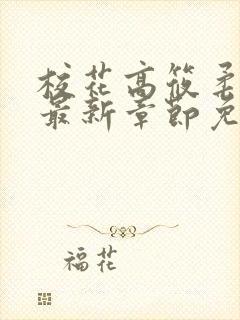 校花高筱柔
最新章節免
福花